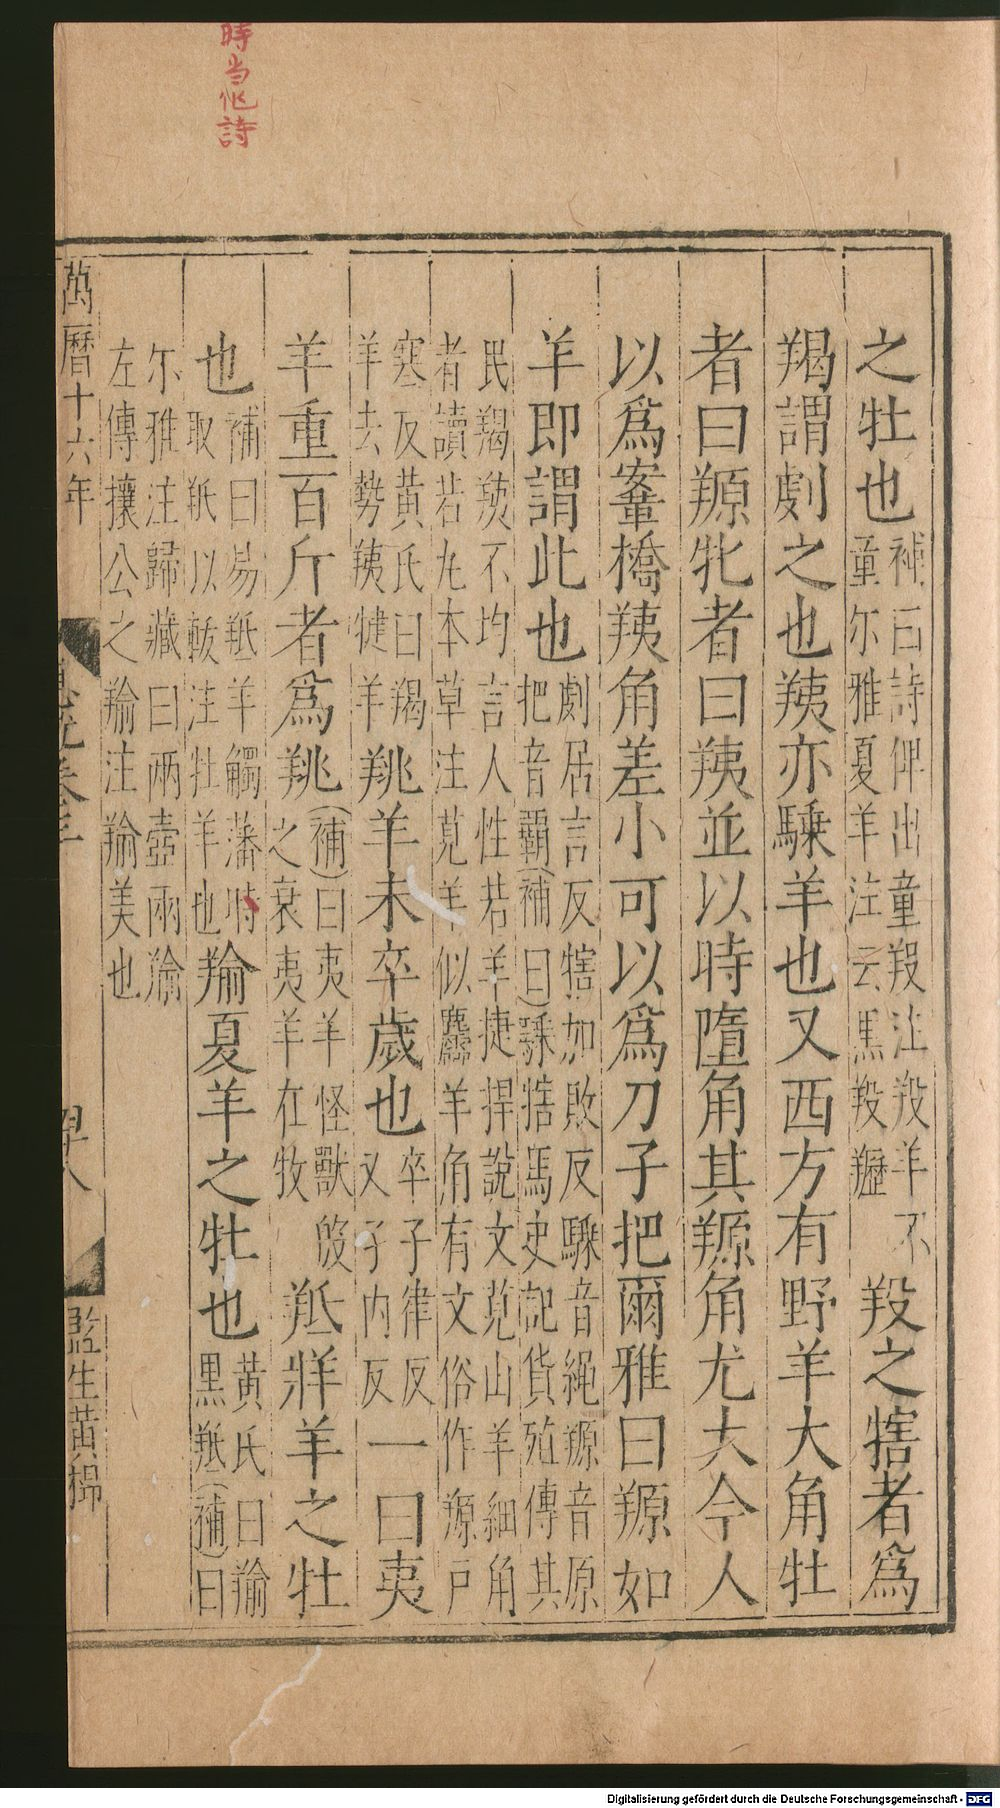 時当作詩
之牡也補曰詩俾出童羖注羖羊不
童尔雅夏羊注云黒羖䍽羖之犗者爲
羯謂劇之也羠亦騬羊也又西方有野羊大角牡
者曰羱牝者曰羠並以時墮角其羱角尤大今人
以爲鞌橋羠角差小可以爲刀子把爾雅曰羱如
羊即謂此也劇居言反犗加敗反騬音繩羱音原
把音霸(補曰)騬犗馬史記貨殖傳其
民羯羠不均言人性若羊捷捍說文莧山羊細角
者讀若丸本草注莧羊似麢羊角有文俗作羱戸
塞反黃氏曰羯
羊去勢羠犍羊羜羊未卒歲也卒子律反
又子内反一曰夷
羊重百斤者爲羜(補)曰夷羊怪獸
之衰夷羊在牧羝牂羊之牡
也補曰易羝羊觸藩時
取羝以軷注牡羊也羭夏羊之牡也黃氏曰羭
黒羝(補)曰
尔雅注歸藏曰兩壺兩羭
左傳攘公之羭注羭美也
萬曆十六年
監生黃
Digitalisierung gefördert durch die Deutsche Forschungsgemeinschaft - DFG